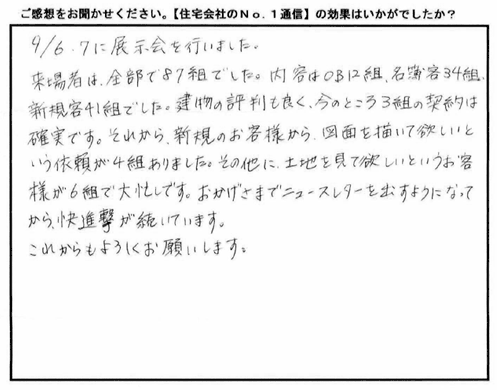 ご感想をお聞かせください。【住宅会社のNo.1通信】の効果はいかがでしたか？
9/6.7に展示会を行いました。
来場者は、全部で87組でした。内容はOB12組、名簿客34組、
新規客41組でした。建物の評判も良く、今のところ3組の契約は
確実です。それから、新規のお客様から、図面を描いて欲しいと
いう依頼が4組ありました。その他に、土地を見て欲しいというお客
様が6組で大忙しです。おかげさまでニュースレターを出すようになって
から、快進撃が続いています。
これからもよろしくお願いします。